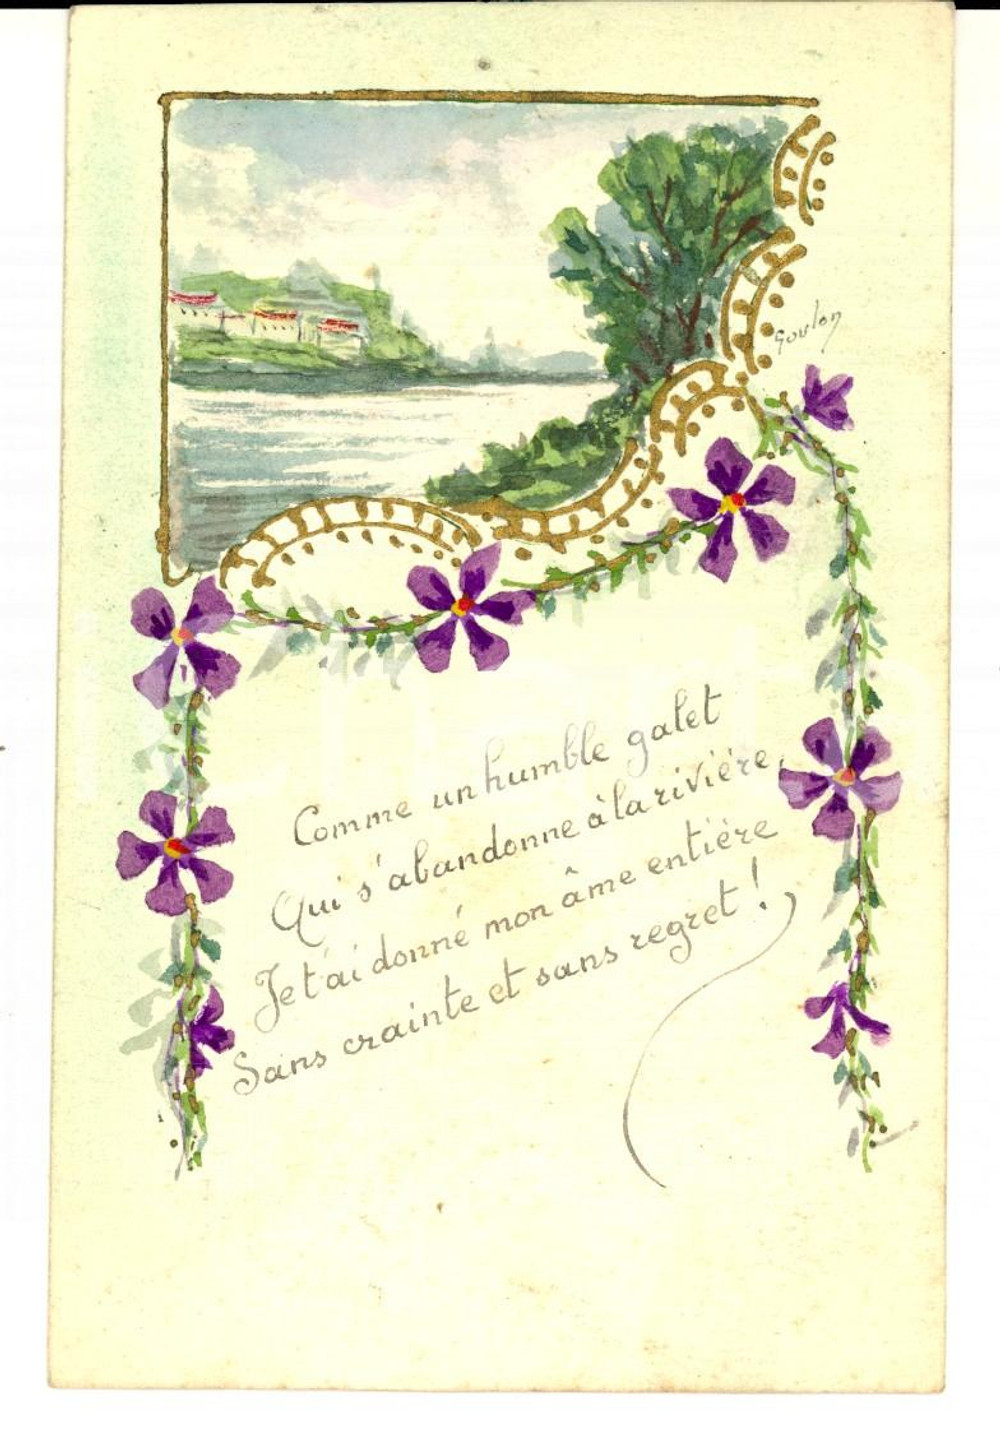 Goulon
Comme un humble galet
Qui s'abandonne à la rivière,
Je t'ai donné mon âme entière
Sans crainte et sans regret !